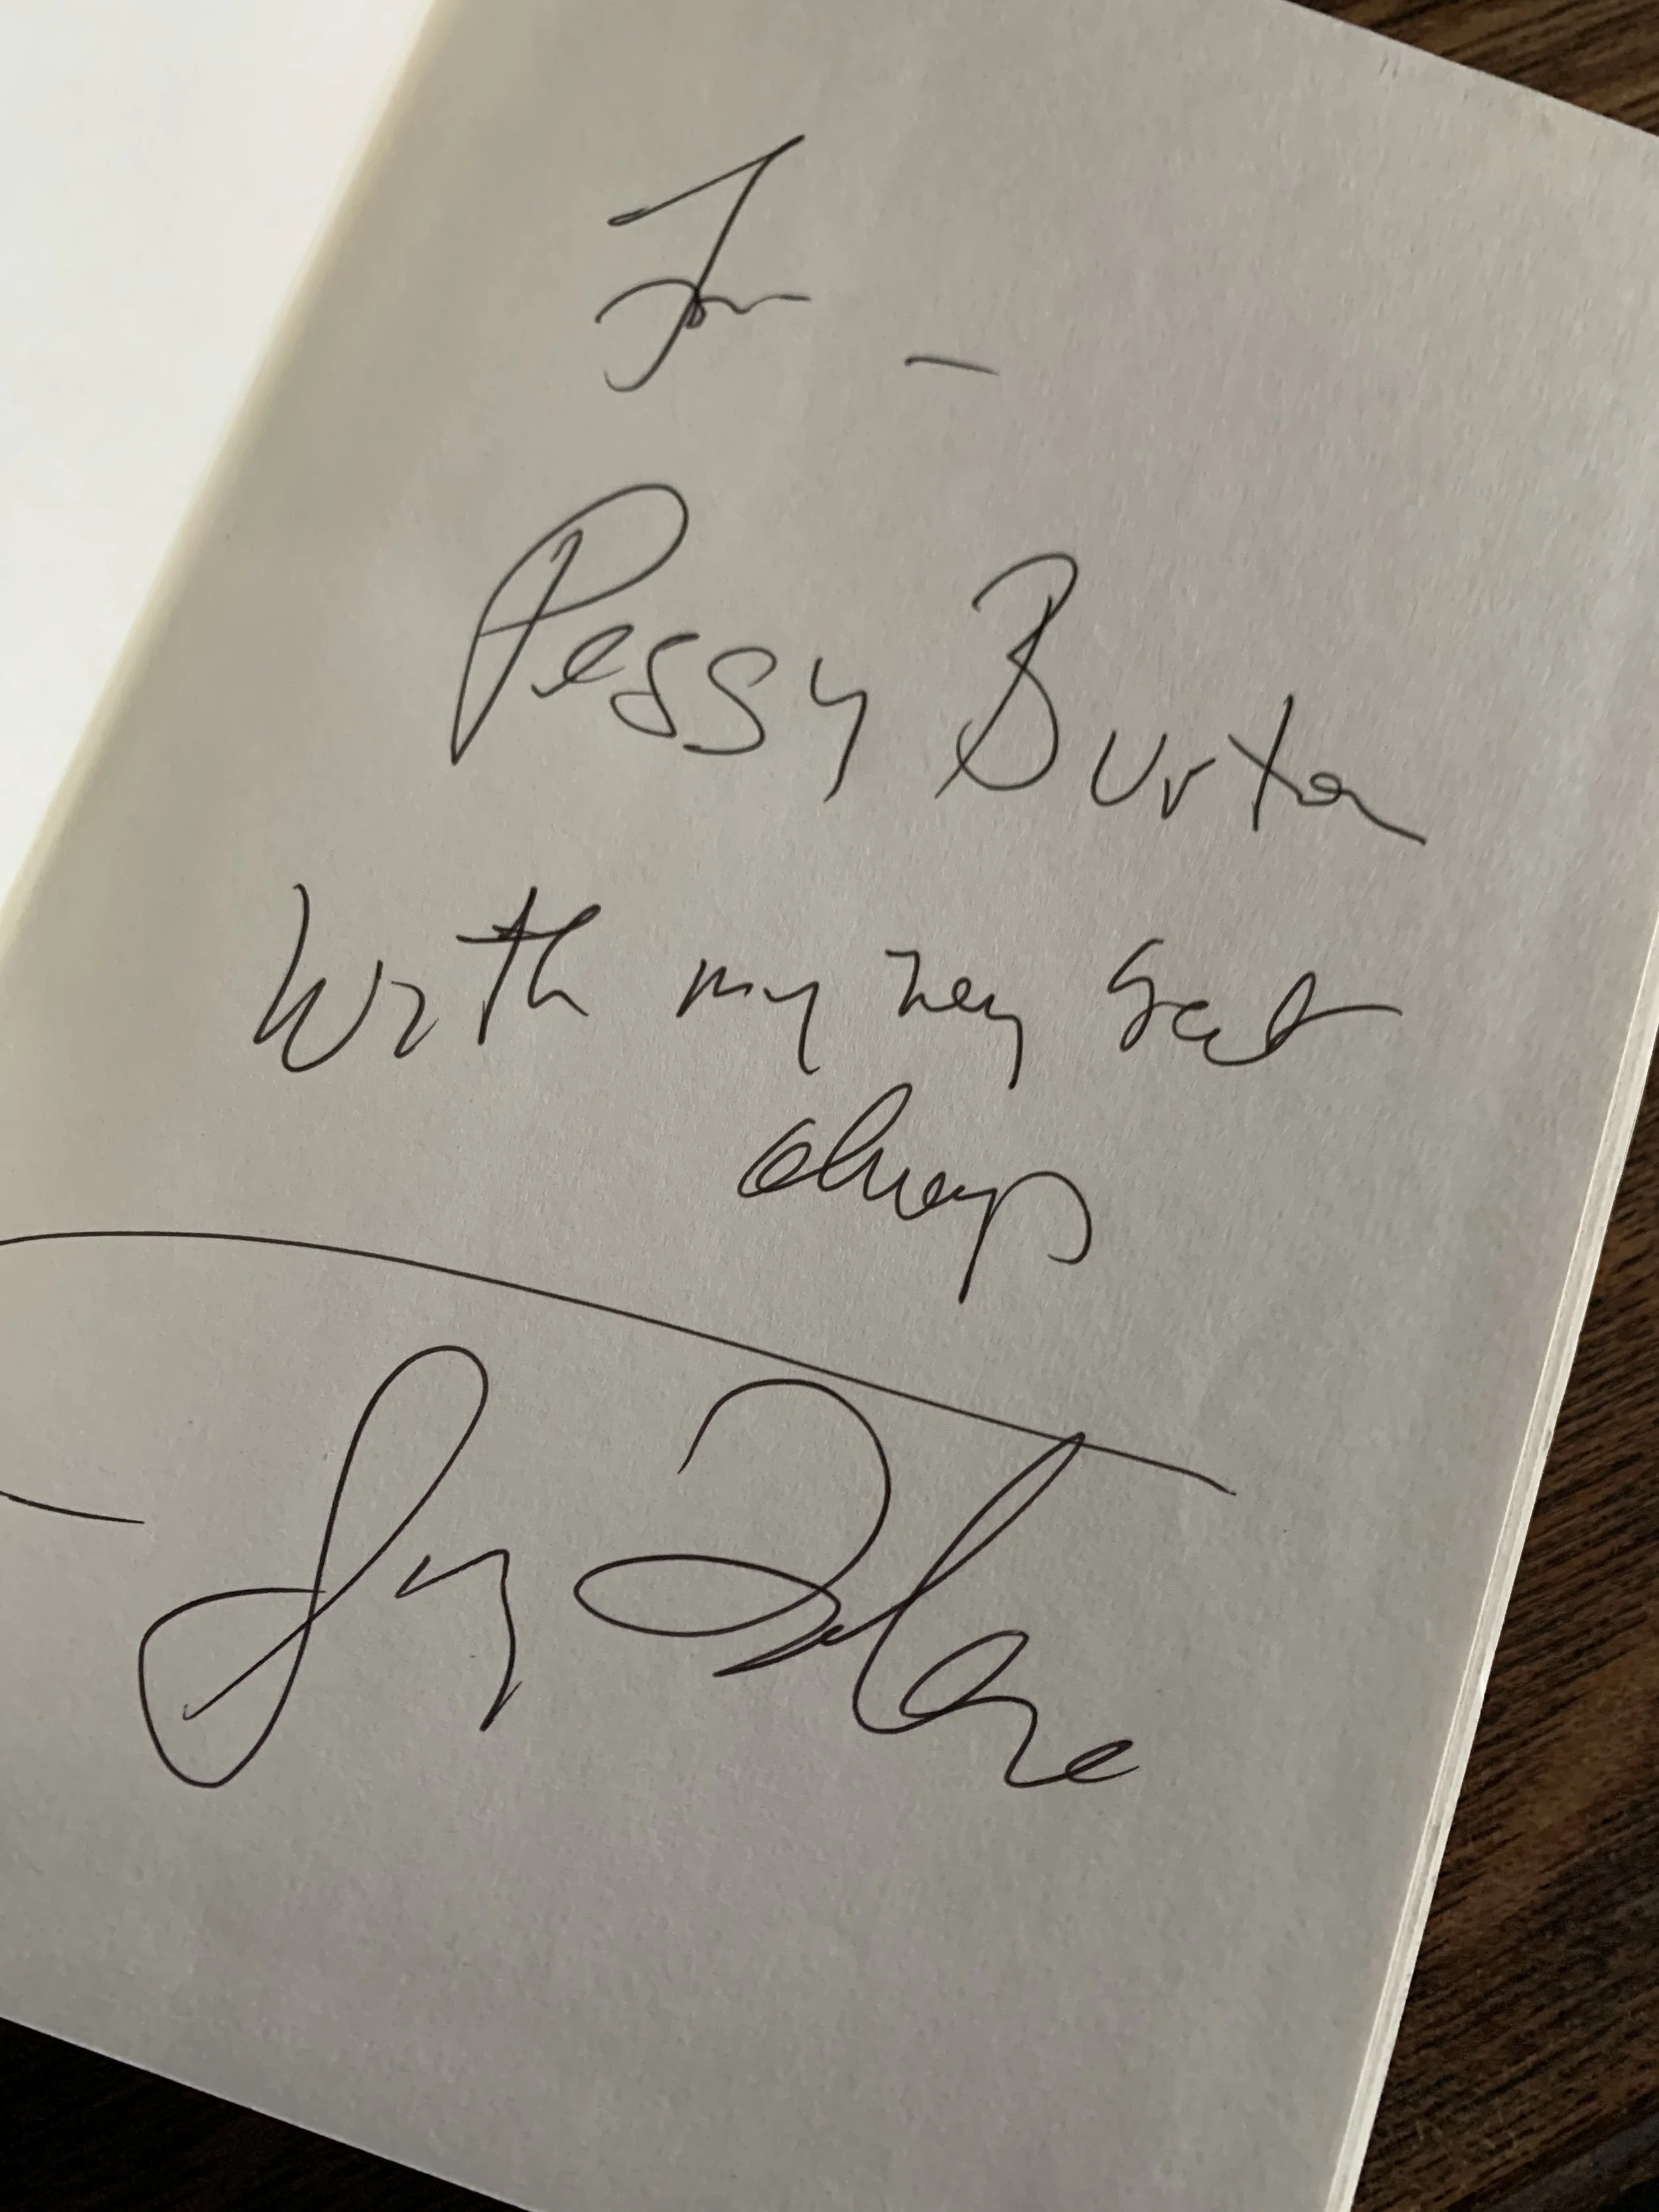 For —
Peggy Burton
With my very best
always